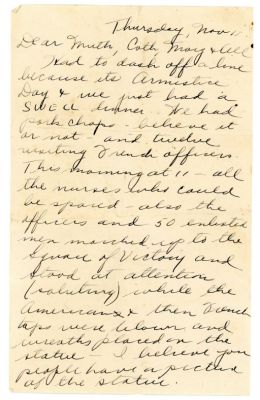 Thursday, Nov 11
Dear Muth, Cath Mary & all
Had to dash off a line
because its Armistice
Day & we just had a
SWELL dinner. We had
pork chops - believe it
or not and twelve
visiting French officers.
This morning at 11 - all
the nurses who could
be spared - also the
officers and 50 enlisted
men marched up to the
Square of Victory and
stood at attention
(saluting) while the
American & then French
taps were blown and
wreaths placed on the
statue - I believe you
people have a picture
of the statue.